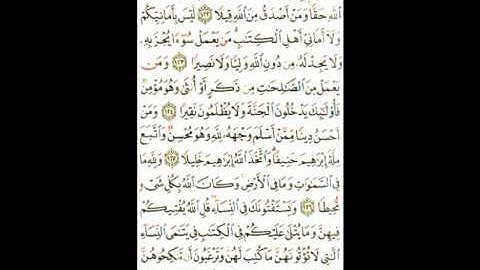 ٱللَّهِ حَقًّا وَمَنْ أَصْدَقُ مِنَ ٱللَّهِ قِيلًا ١٢٢ لَّيْسَ بِأَمَانِيِّكُمْ
وَلَآ أَمَانِيِّ أَهْلِ ٱلْكِتَٰبِ مَن يَعْمَلْ سُوٓءًا يُجْزَ بِهِۦ
وَلَا يَجِدْ لَهُۥ مِن دُونِ ٱللَّهِ وَلِيًّا وَلَا نَصِيرًا ١٢٣ وَمَن
يَعْمَلْ مِنَ ٱلصَّٰلِحَٰتِ مِن ذَكَرٍ أَوْ أُنثَىٰ وَهُوَ مُؤْمِنٌ
فَأُو۟لَٰٓئِكَ يَدْخُلُونَ ٱلْجَنَّةَ وَلَا يُظْلَمُونَ نَقِيرًا ١٢٤ وَمَنْ
أَحْسَنُ دِينًا مِّمَّنْ أَسْلَمَ وَجْهَهُۥ لِلَّهِ وَهُوَ مُحْسِنٌ وَٱتَّبَعَ
مِلَّةَ إِبْرَٰهِيمَ حَنِيفًا وَٱتَّخَذَ ٱللَّهُ إِبْرَٰهِيمَ خَلِيلًا ١٢٥ وَلِلَّهِ مَا
فِى ٱلسَّمَٰوَٰتِ وَمَا فِى ٱلْأَرْضِ وَكَانَ ٱللَّهُ بِكُلِّ شَىْءٍ
مُّحِيطًا ١٢٦ وَيَسْتَفْتُونَكَ فِى ٱلنِّسَآءِ قُلِ ٱللَّهُ يُفْتِيكُمْ
فِيهِنَّ وَمَا يُتْلَىٰ عَلَيْكُمْ فِى ٱلْكِتَٰبِ فِى يَتَٰمَى ٱلنِّسَآءِ
ٱلَّٰتِى لَا تُؤْتُونَهُنَّ مَا كُتِبَ لَهُنَّ وَتَرْغَبُونَ أَن تَنكِحُوهُنَّ